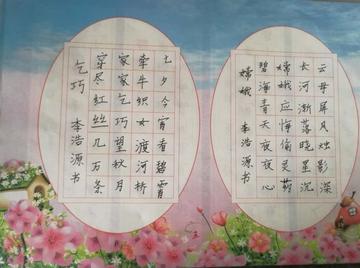 云母屏风烛影深
长河渐落晓星沉
嫦娥应悔偷灵药
碧海青天夜夜心
嫦娥 李浩源书
七夕今宵看碧霄
牵牛织女渡河桥
家家乞巧望秋月
穿尽红丝几万条
乞巧 李浩源书